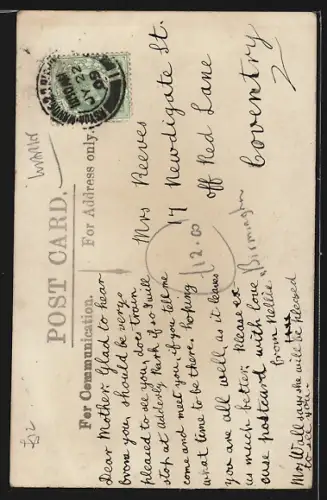 POST CARD.
For Communication.
For Address only.
Dear Mother. Glad to hear
from you, should be very
pleased to see you, does train
stop at Adderly Park if so I will
come and meet you, if you tell me
what time to be there. hoping
you are all well, as it leaves
us much better. Please ex
cuse postcard with love
from Nellie
Mrs Wall says she will be pleased
to see you.
Mrs Reeves
17 Newdigate St.
off Red Lane
Coventry
Birmingham
12.00
JY 22
09